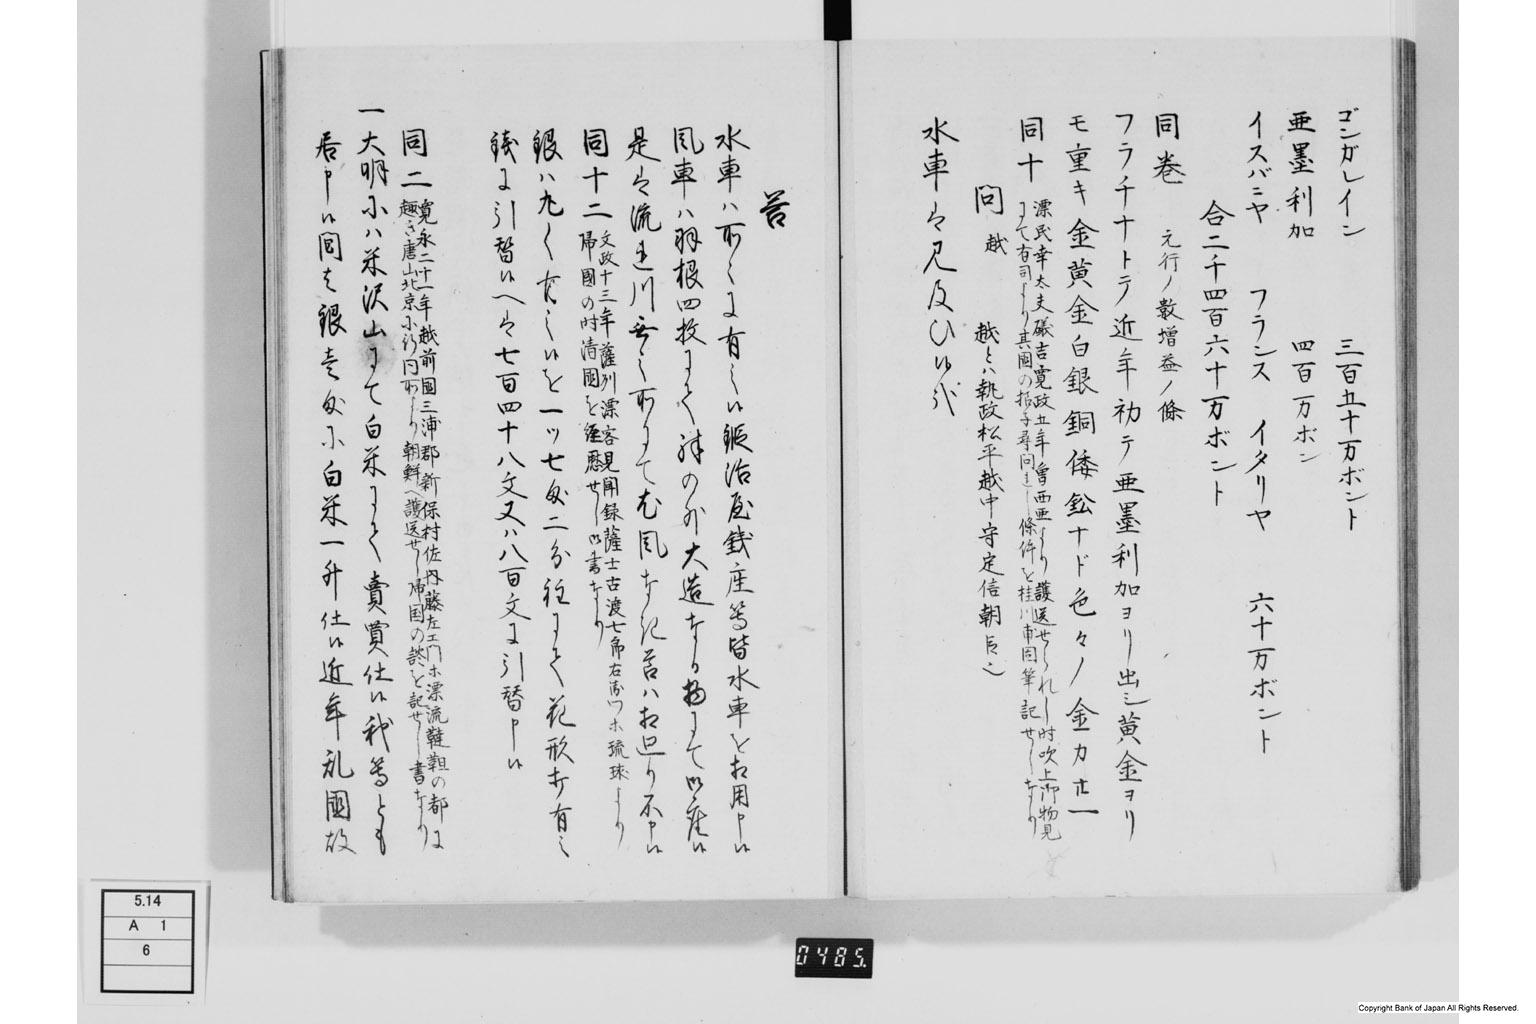 ゴンガレイン 三百五十万ボント
亜墨利加 四百万ボン
イスバニヤ フランス イタリヤ 六十万ボント
合二千四百六十万ボント
同巻 元行ノ数増益ノ條
フラチナトテ近年初テ亜墨利加ヨリ出シ黄金ヨリ
モ重キ金黄金白銀銅倭鈆ナド色々ノ金カ
同十 漂民幸太夫礒吉寛政五年魯西亜より護送せられし時吹上御物見
にて有司より其國の様子尋問まし條件を桂川甫周筆記せしなり
問 越 越とハ執政松平越中守定信朝臣之
水車は見及ひ候哉
答
水車ハ所々に有之候鍛冶屋銭座等皆水車を相用申候
風車ハ羽根四枚にて殊の外大造なる物にて御座候
是は流れ川無之所にて尤風なき節ハ相廻り不申候
同十二 文政十三年薩州漂客見聞録薩士古渡七郎右衛門ホ琉球より
帰國の時清國を経歴せし次書なり
銀ハ丸く有之候を一ツ七匁二分程にて花形抔有之
銭に引替候へは七百四十八文又ハ八百文に引替申候
同二 寛永二十一年越前國三浦郡新保村佐内藤左エ門ホ漂流韃靼の都に
趣き唐山北京に行同所より朝鮮へ護送せし帰国の談を記せし書なり
一大明にハ米沢山にて白米にて賣買仕候我等とも
居申候間は銀壱匁に白米一升仕候近年乱國故
5.14
A 1
6
0485.
Copyright Bank of Japan All Rights Reserved.